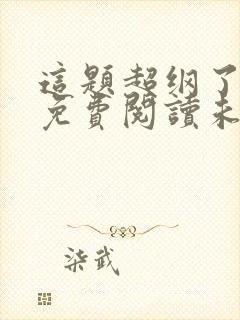 這題超纲了
免費閱讀未
柒武